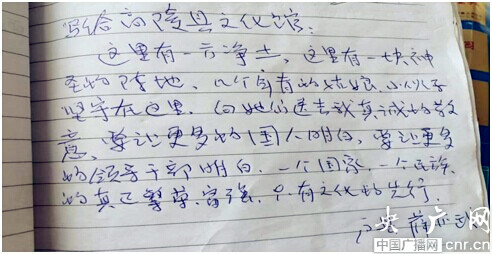 写给高陵县文化馆：
这里有一方净土，这里有一块神
圣的阵地，几个年青的姑娘、小伙子
坚守在这里，向她们送去我真诚的敬
意，要让更多的国人明白，要让更多
的领导干部明白，一个国家，一个民族
的真正繁荣富强，只有文化的先行。
央广网
中国广播网 cnr.cn